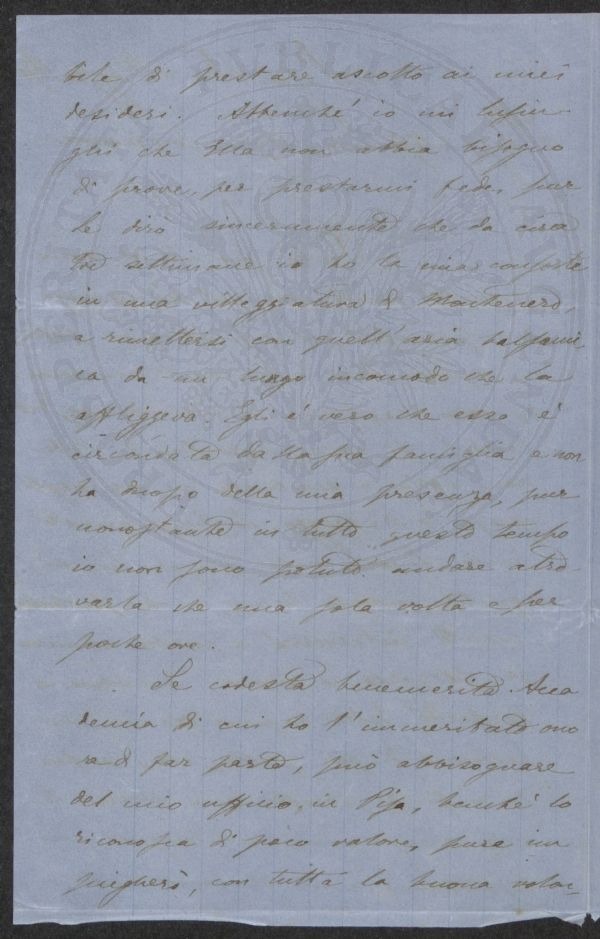 bile di prestare ascolto ai miei
desideri. Abbenché io mi lusin-
ghi che Ella non abbia bisogno
di prove, per prestarmi fede, pur
le dirò sinceramente che da circa
tre settimane io ho la mia consorte
in una villeggiatura di Montenero,
a rimettersi con quell'aria balsami-
ca da un lungo incomodo che la
affliggeva. Egli è vero che essa è
circondata dalla sua famiglia e non
ha duopo della mia presenza, pur
nonostante in tutto questo tempo
io non sono potuto andare a tro-
varla che una sola volta e per
poche ore.
Se codesta benemerita Acca
demia di cui ho l'immeritato ono
re di far parte, può abbisognare
del mio ufficio, in Pisa, benché lo
riconosca di poco valore, pure im
piegherò, con tutta la buona volon-